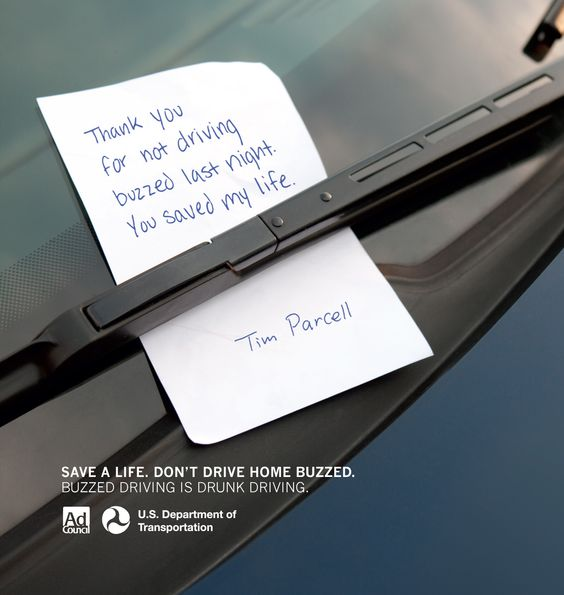 Thank you
for not driving
buzzed last night.
You saved my life.
Tim Parcell
SAVE A LIFE. DON'T DRIVE HOME BUZZED.
BUZZED DRIVING IS DRUNK DRIVING.
Ad
Council
U.S. Department of
Transportation